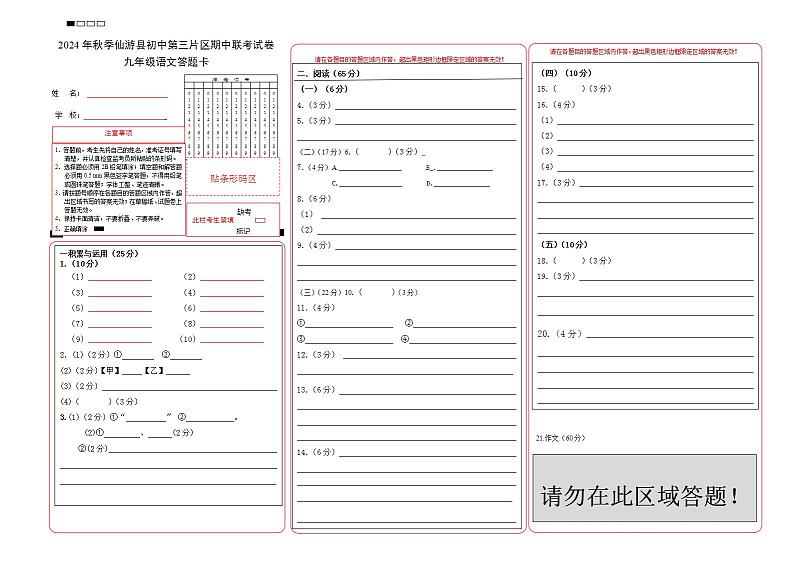 2024 年秋季仙游县初中第三片区期中联考试卷
九年级语文答题卡
姓 名：
学 校：
准 考 证 号
注意事项
1．答题前，考生先将自己的姓名，准考证号填写
清楚，并认真检查监考员所粘贴的条形码。
2．选择题必须用 2B 铅笔填涂；填空题和解答题
必须用 0.5 mm 黑色签字笔答题，不得用铅笔
或圆珠笔答题；字体工整、笔迹清晰。
3．请按题号顺序在各题目的答题区域内作答，超
出区域书写的答案无效；在草稿纸、试题卷上
答题无效。
4．保持卡面清洁，不要折叠、不要弄破。
5．正确填涂
贴条形码区
此栏考生禁填
缺考
标记
一积累与运用（25分）
1.（10分）
（1） （2）
（3） （4）
（5） （6）
（7） （8）
（9） （10）
2.（1)（2 分）① ②
(2)（2 分)【甲】 【乙】
(3)（2 分）
(4)（ ）(3分)
3.(1)（2 分）①“ ” ② 。
(2)① 、 (2分)
②(2 分)
请在各题目的答题区域内作答，超出黑色矩形边框限定区域的答案无效！
二．阅读（65分）
（一）（6分）
4.（3 分）
5.（3 分）
(二)(17分)6.（ ）(3 分)_
7.（4 分）A. B_.
C. D.
8.（6 分）
（1）
（2）
9.（4 分）
(三)(22分)10.（ ）(3分)
11.（4 分）
① ②
③ ④
12.（3 分）
13.（6 分）
14.（6 分）
请在各题目的答题区域内作答，超出黑色矩形边框限定区域的答案无效！
（四）（10分）
15.（ ）(3 分)
16.（4 分）
（1）
（2）
（3）
（4）
17.（3 分）
（五）（10分）
18.（ ）(3 分)
19.（3 分）
20.（4 分）
21.作文（60分）
请勿在此区域答题！